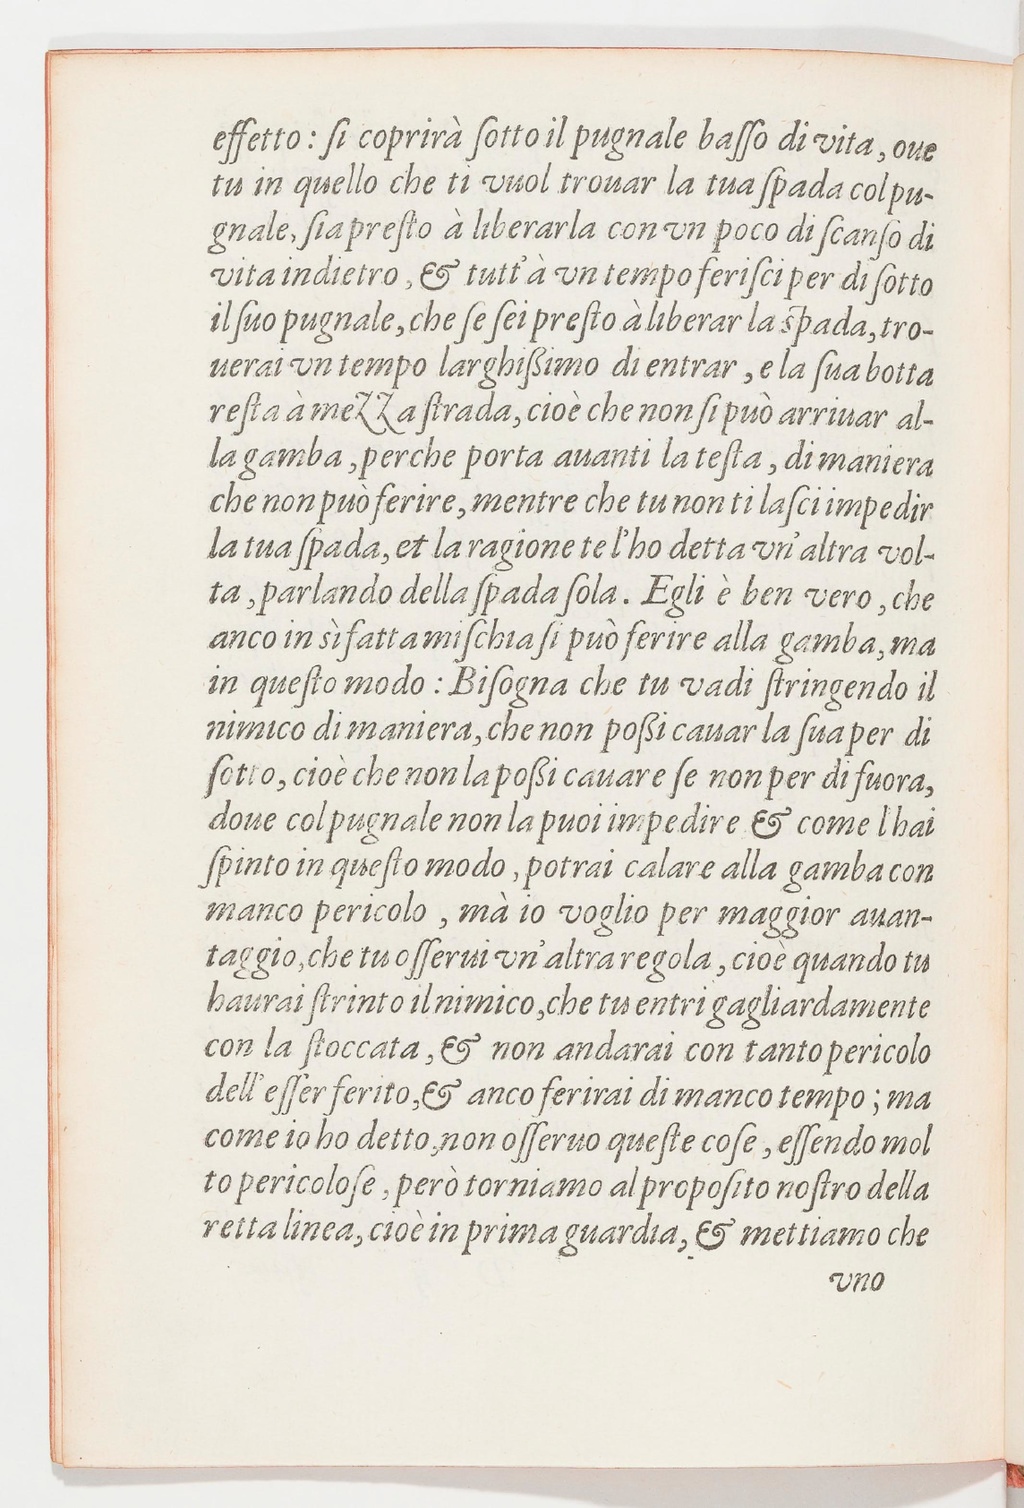 effetto: ſi coprirà ſotto il pugnale baſſo di vita, oue
tu in quello che ti vuol trouar la tua ſpada col pu-
gnale, ſia preſto à liberarla con vn poco di ſcanſo di
vita indietro, & tutt'à vn tempo feriſci per di ſotto
il ſuo pugnale, che ſe ſei preſto à liberar la ſpada, tro-
uerai vn tempo larghißimo di entrar, e la ſua botta
reſta à mezza ſtrada, cioè che non ſi può arriuar al-
la gamba, perche porta auanti la teſta, di maniera
che non può ferire, mentre che tu non ti laſci impedir
la tua ſpada, et la ragione te l'ho detta vn'altra vol-
ta, parlando della ſpada ſola. Egli è ben vero, che
anco in sì fatta miſchia ſi può ferire alla gamba, ma
in queſto modo: Biſogna che tu vadi ſtringendo il
nimico di maniera, che non poßi cauar la ſua per di
ſotto, cioè che non la poßi cauare ſe non per di fuora,
doue col pugnale non la puoi impedire & come l'hai
ſpinto in queſto modo, potrai calare alla gamba con
manco pericolo, mà io voglio per maggior auan-
taggio, che tu oſſerui vn'altra regola, cioè quando tu
haurai ſtrinto il nimico, che tu entri gagliardamente
con la ſtoccata, & non andarai con tanto pericolo
dell'eſſer ferito, & anco ferirai di manco tempo; ma
come io ho detto, non oſſeruo queſte coſe, eſſendo mol
to pericoloſe, però torniamo al propoſito noſtro della
retta linea, cioè in prima guardia, & mettiamo che
vno